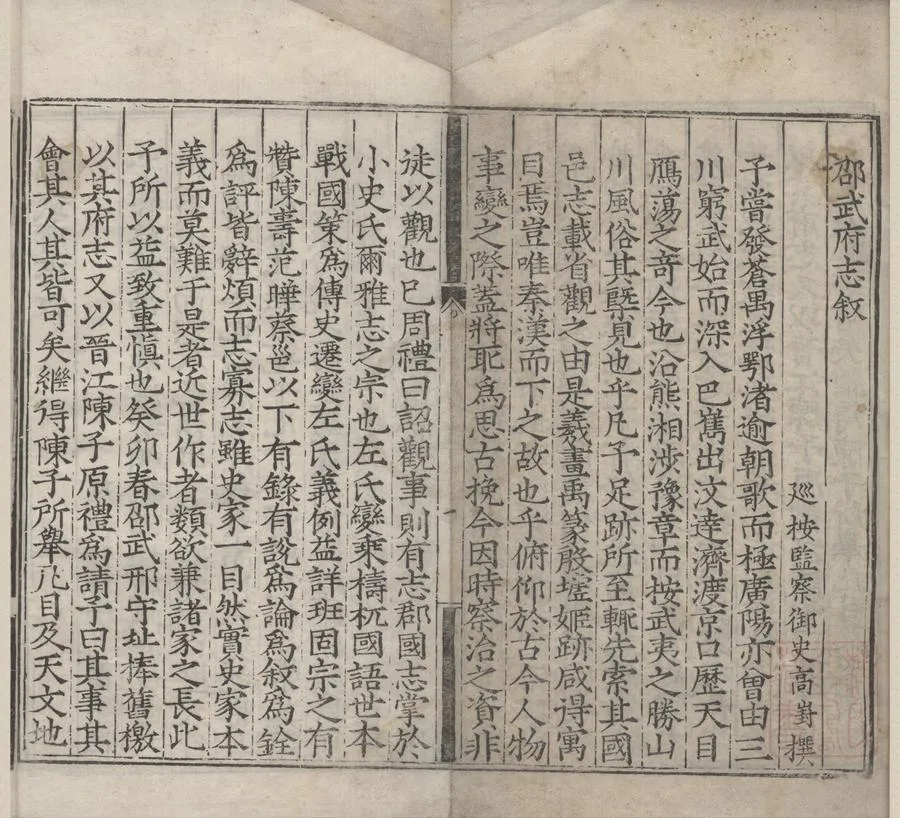 邵武府志叙
廵按監察御史高對撰
予嘗發蒼禺浮鄂渚逾朝歌而極廣陽亦曾由三
川窮武始而深入巴雋出汶逹濟渡京口歷天目
鴈蕩之竒今也沿熊湘渉豫章而按武夷之勝山
川風俗其槩見也乎凡予足跡所至輒先索其國
邑志載省觀之由是羲畫禹篆殷墟姬跡咸得寓
目焉豈唯秦漢而下之故也乎俯仰於古今人物
事變之際蓋將耴爲思古挽今因時察治之資非
徒以觀也巳周禮曰詔觀事則有志郡國志掌於
小史氏爾雅志之宗也左氏變乘檮杌國語世本
戰國策爲傳史遷變左氏義例益詳班固宗之有
贊陳壽范曄蔡邕以下有錄有說爲論爲叙爲銓
爲評皆辭煩而志寡志雖史家一目然實史家本
義而莫難于是者近世作者類欲兼諸家之長此
予所以益致重愼也癸卯春邵武邢守址捧舊檄
以其府志又以晉江陳子原禮爲請予曰其事其
會其人其皆可矣繼得陳子所舉凢目及天文地